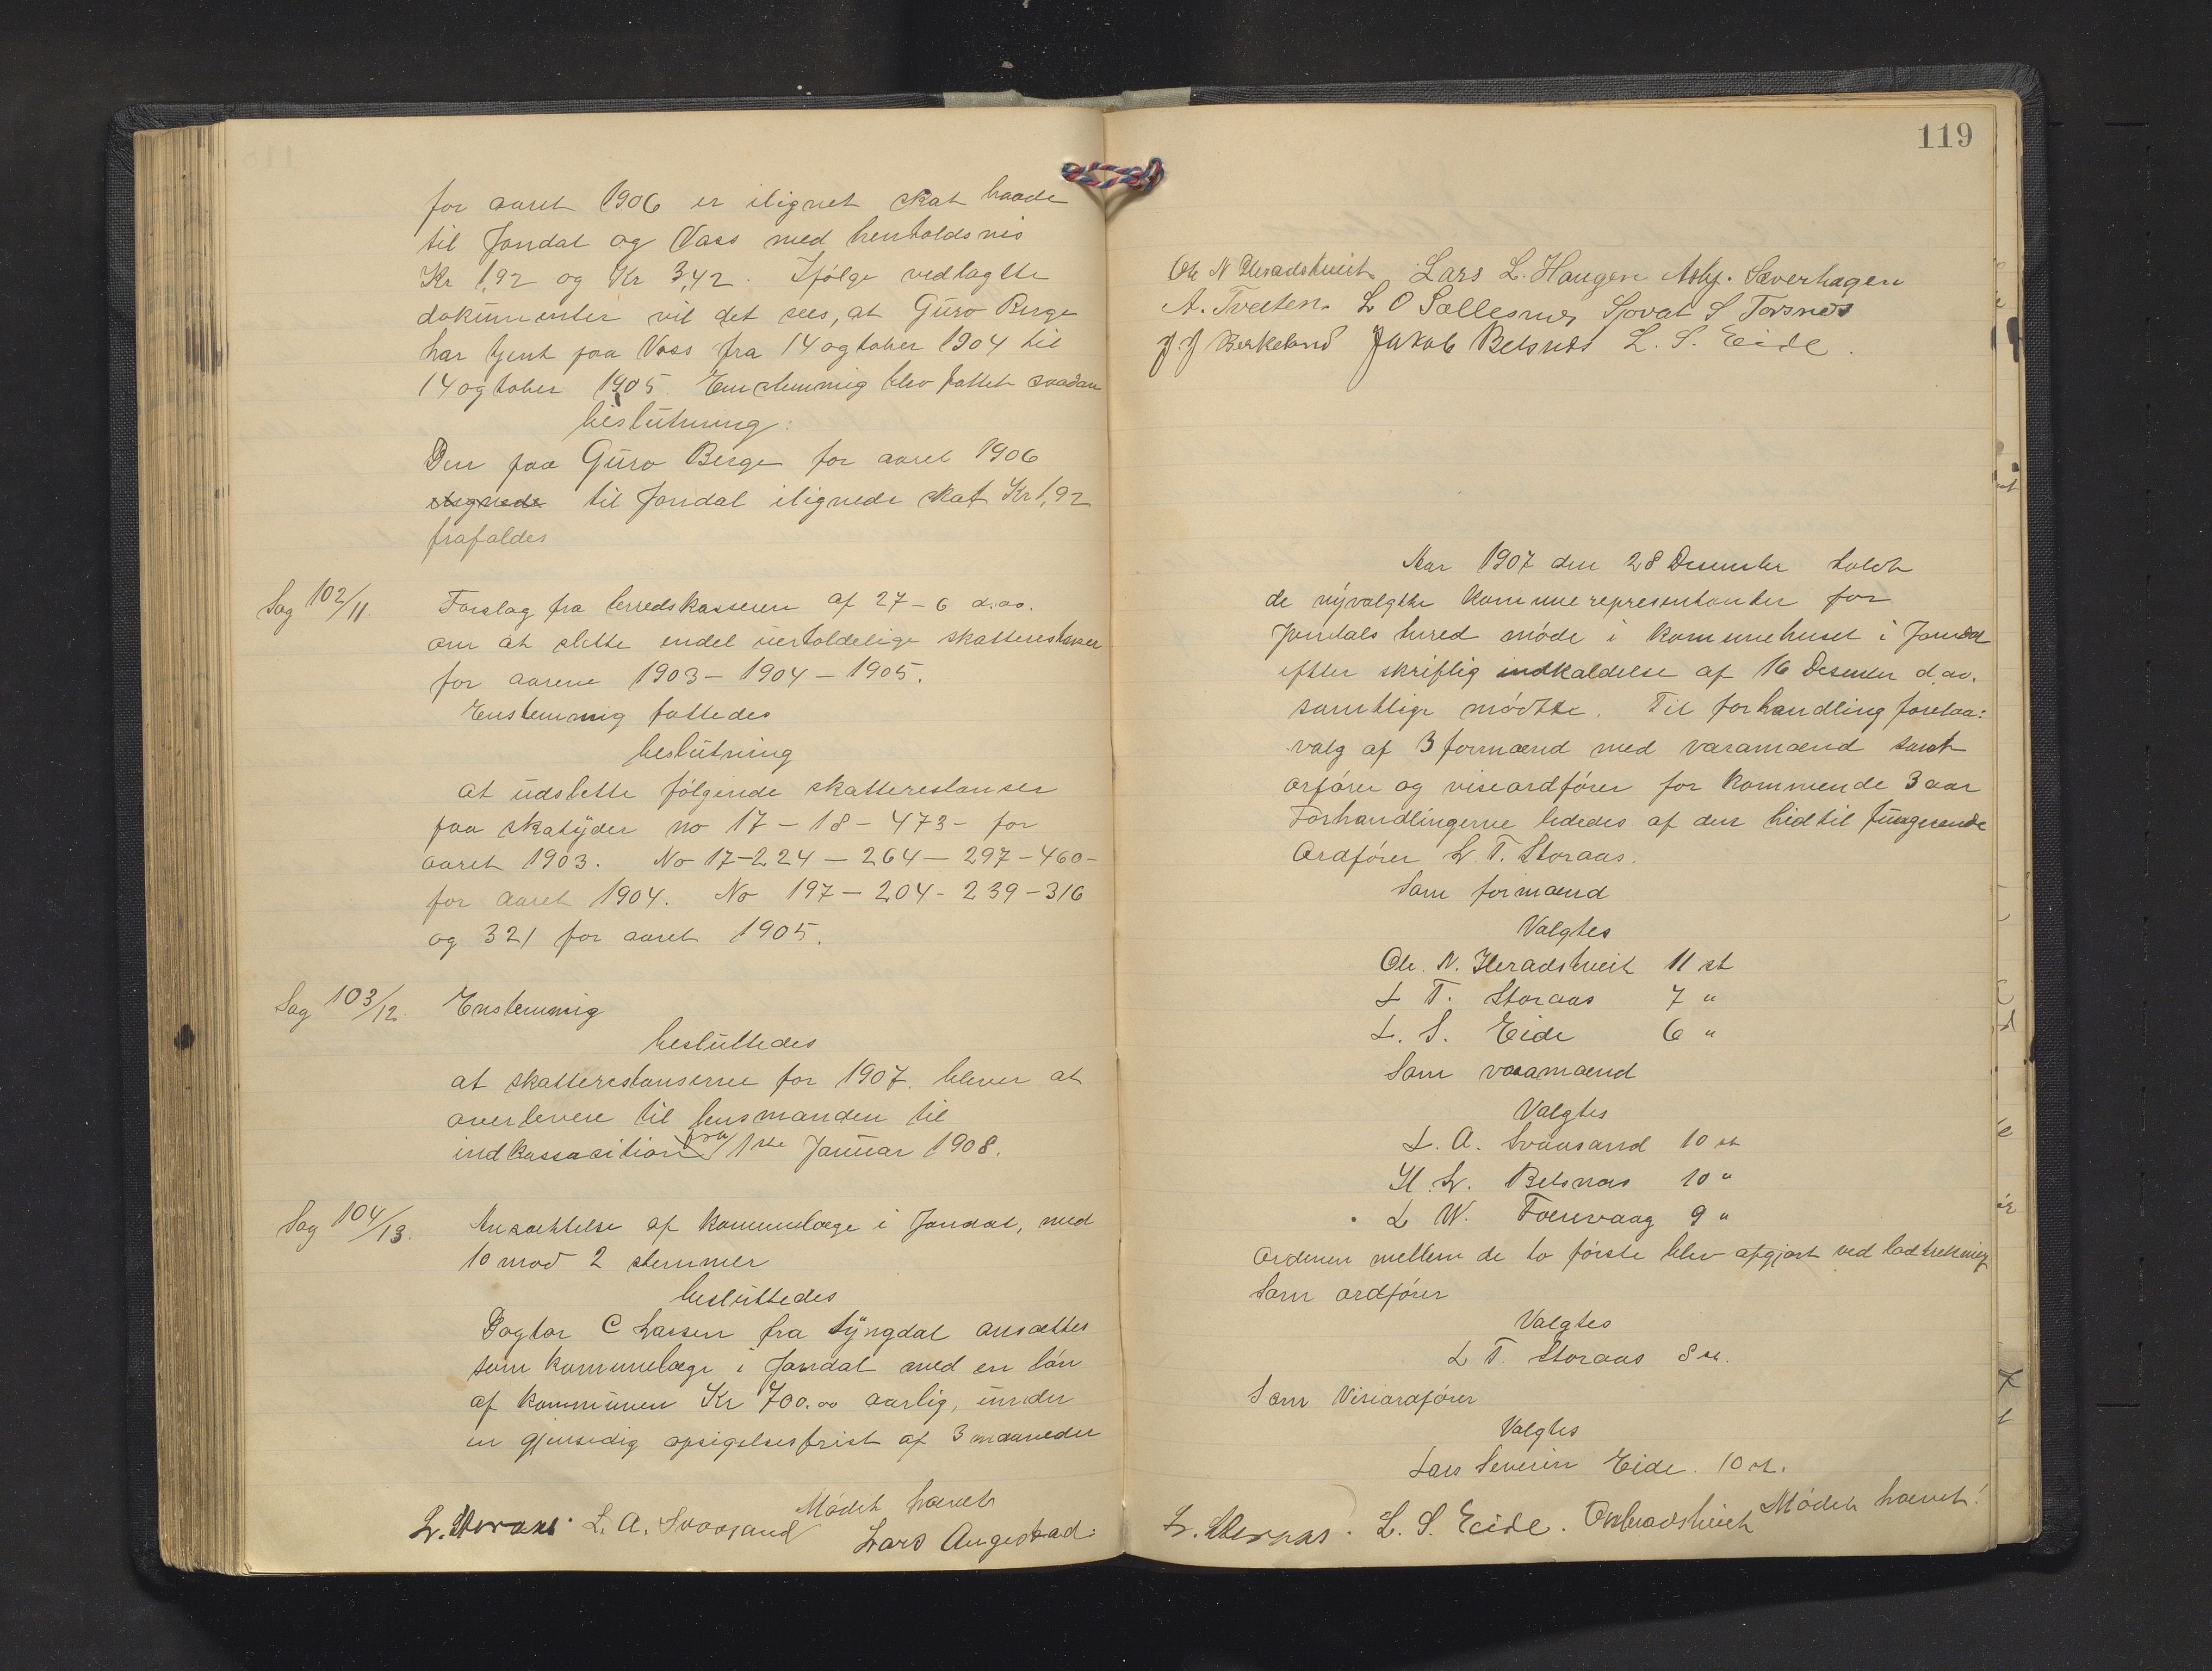 for aaret 1906 er ilignet skat baade
til Jondal og Vass med henholdsvis
Kr 1,92 og Kr 3,42. Ifølge vedlagtte
dokumenter vil det sees, at Guro Berge
har tjent paa Voss fra 14 ogtober 1904 til
14 ogtober 1905. Enstemmig blev fattet saadan
beslutning:
Den paa Guro Berge for aaret 1906
til Jondal ilignede skat Kr 1,92
frafaldes
Sag 102/11 Forslag fra herredskasseren af 27-6 d.aa.
om at slette endel uerholdelige skatterestanser
for aarene 1903 - 1904 - 1905.
Enstemmig fattedes
beslutning
at udslette følgende skatterestanser
paa skatyder no 17 - 18 - 473 - for
aaret 1903. No 17 - 224 - 264 - 297 - 460 -
for aaret 1904. No 197 - 204 - 239 - 316
og 321 for aaret 1905.
Sag 103/12. Enstemmig
besluttedes
at skatterestanserne for 1907 bliver at
overlevere til lensmanden til
indkassasition fra 1ste Januar 1908.
Sag 104/13. Ansættelse af kommunelæge i Jondal, med
10 mod 2 stemmer
besluttedes
Dogtor C Larsen fra Lyngdal ansættes
som kommunelæge i Jondal med en løn
af kommunen Kr 700.00 aarlig, under
en gjensidig opsigelsesfrist af 3 maaneder
Mødet hævet
L. Storaas. L. A. Svaasand Lars Augestad.
119
Ole N Heradstveit Lars L. Haugen Asbj. Sæverhagen
A. Tveiten. L O Sollesnes Sjovat S Torsnes
J J Berkeland Jakob Belsnes L. S. Eide.
Aar 1907 den 28 Desember holdt
de nyvalgte kommunerepresentanter for
Jondals herred møde i kommunehuset i Jondal
efter skriftlig indkaldelse af 16 Desember d.aa.
samtlige mødtte. Til forhandling forelaa:
valg af 3 formænd med varamænd samt
orfører og viseordfører for kommende 3 aar
Forhandlingerne lededes af den hidtil fungerende
Ordfører L. T. Storaas.
Som formænd
Valgtes
Ole. N. Heradstveit 11 st
L T. Storaas 7 "
L. S. Eide 6 "
Som varamænd
Valgtes
L. A. Svaasand 10 st
H. L. Belsnes 10 "
L W. Folkevaag 9 "
Ordenen mellem de to første blev afgjort ved lodtrekning
Som ordfører
Valgtes
L T. Storaas 8 st.
Som Viseordfører
Valgtes
Lars Severin Eide. 10 st.
Mødet hævet!
L. Storaas. L. S. Eide. O N Heradstveit